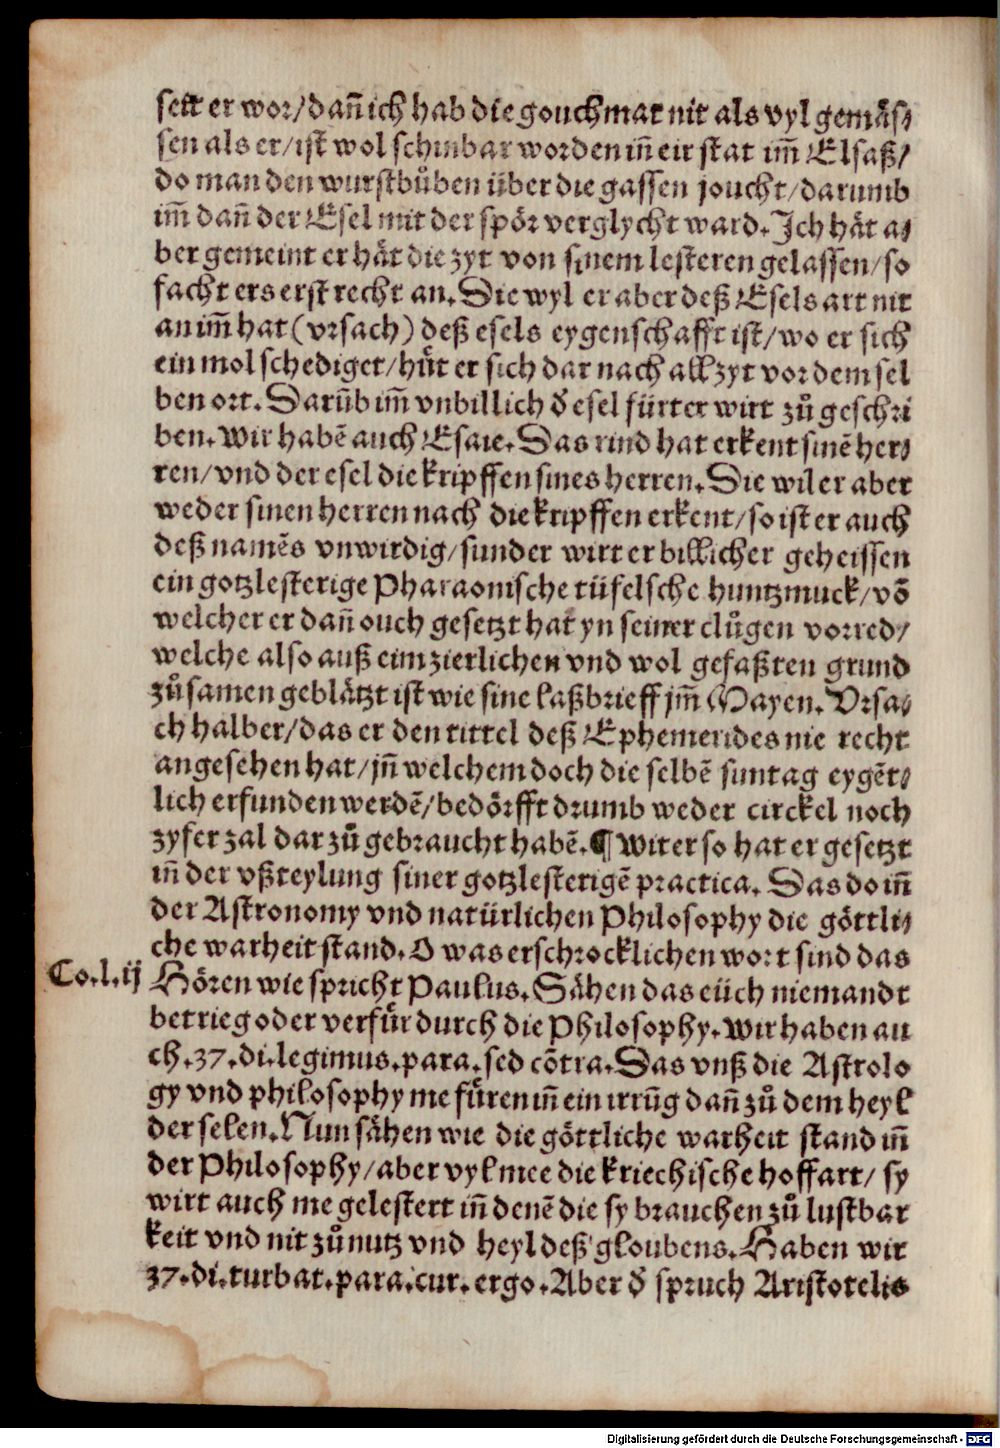 seit er wor/dañ ich hab die gouchmat nit als vyl gemäs⸗
sen als er/ist wol schinbar worden iñ eir stat im̃ Elsaß/
do man den wurstbůben über die gassen joucht/darumb
im̃ dañ der Esel mit der spör verglycht ward. Ich hät a⸗
ber gemeint er hät die zyt von sinem lesteren gelassen/so
facht ers erst recht an. Die wyl er aber deß Esels art nit
an im̃ hat (vrsach) deß esels eygenschafft ist/wo er sich
ein mol schediget/hüt er sich dar nach allzyt vor dem sel
ben ort. Darūb im̃ vnbillich ð esel fürter wirt zů geschri
ben. Wir habē auch Esaie. Das rind hat erkent sinē her⸗
ren/vnd der esel die kripffen sines herren. Die wil er aber
weder sinen herren nach die kripffen erkent/so ist er auch
deß namēs vnwirdig/sunder wirt er billicher geheissen
ein gotzlesterige Pharaonische tüfelsche huntzmuck/vō
welcher er dañ ouch gesetzt hat yn seiner clůgen vorred/
welche also auß eim zierlichen vnd wol gefaßten grund
zůsamen geblätzt ist wie sine laßbrieff jm̃ Mayen. Vrsa⸗
ch halber/das er den tittel deß Ephemerides nie recht
angesehen hat/jñ welchem doch die selbē suntag eygēt⸗
lich erfunden werdē/bedörfft drumb weder circkel noch
zyfer zal dar zů gebraucht habē. ¶ Witer so hat er gesetzt
iñ der vßteylung siner gotzlesterigē practica. Das do iñ
der Astronomy vnd natürlichen Philosophy die göttli⸗
che warheit stand. O was erschrocklichen wort sind das
Co.l.ij Hören wie spricht Paulus. Sähen das eüch niemandt
betrieg oder verfür durch die Philosophy. Wir haben au
ch.37.di.legimus.para.sed cōtra. Das vnß die Astrolo
gy vnd philosophy me füren iñ ein irrūg dañ zů dem heyl
der selen. Nun sähen wie die göttliche warheit stand iñ
der Philosophy/aber vyl mee die kriechische hoffart/ sy
wirt auch me gelestert iñ denē die sy brauchen zů lustbar
keit vnd nit zů nutz vnd heyl deß gloubens. Haben wir
37.di.turbat.para.cur.ergo. Aber ð spruch Aristotelis
Digitalisierung gefördert durch die Deutsche Forschungsgemeinschaft - DFG